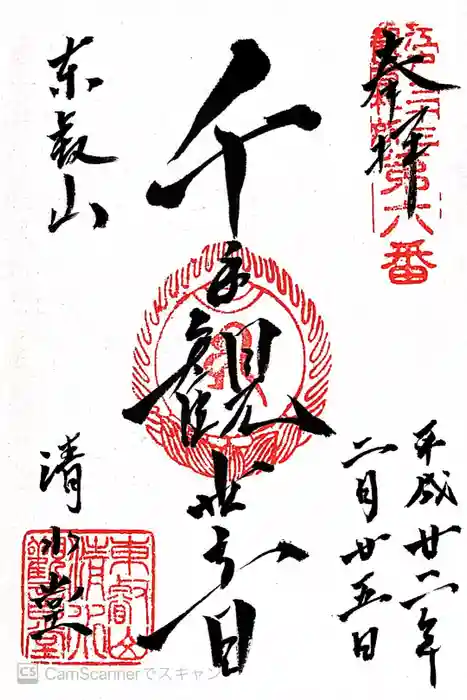 奉拝
江戸三十三所第六番
平成廿二年
二月廿五日
千手観世音
東叡山
清水堂
東叡山
清水
観音堂
CS CamScannerでスキャン